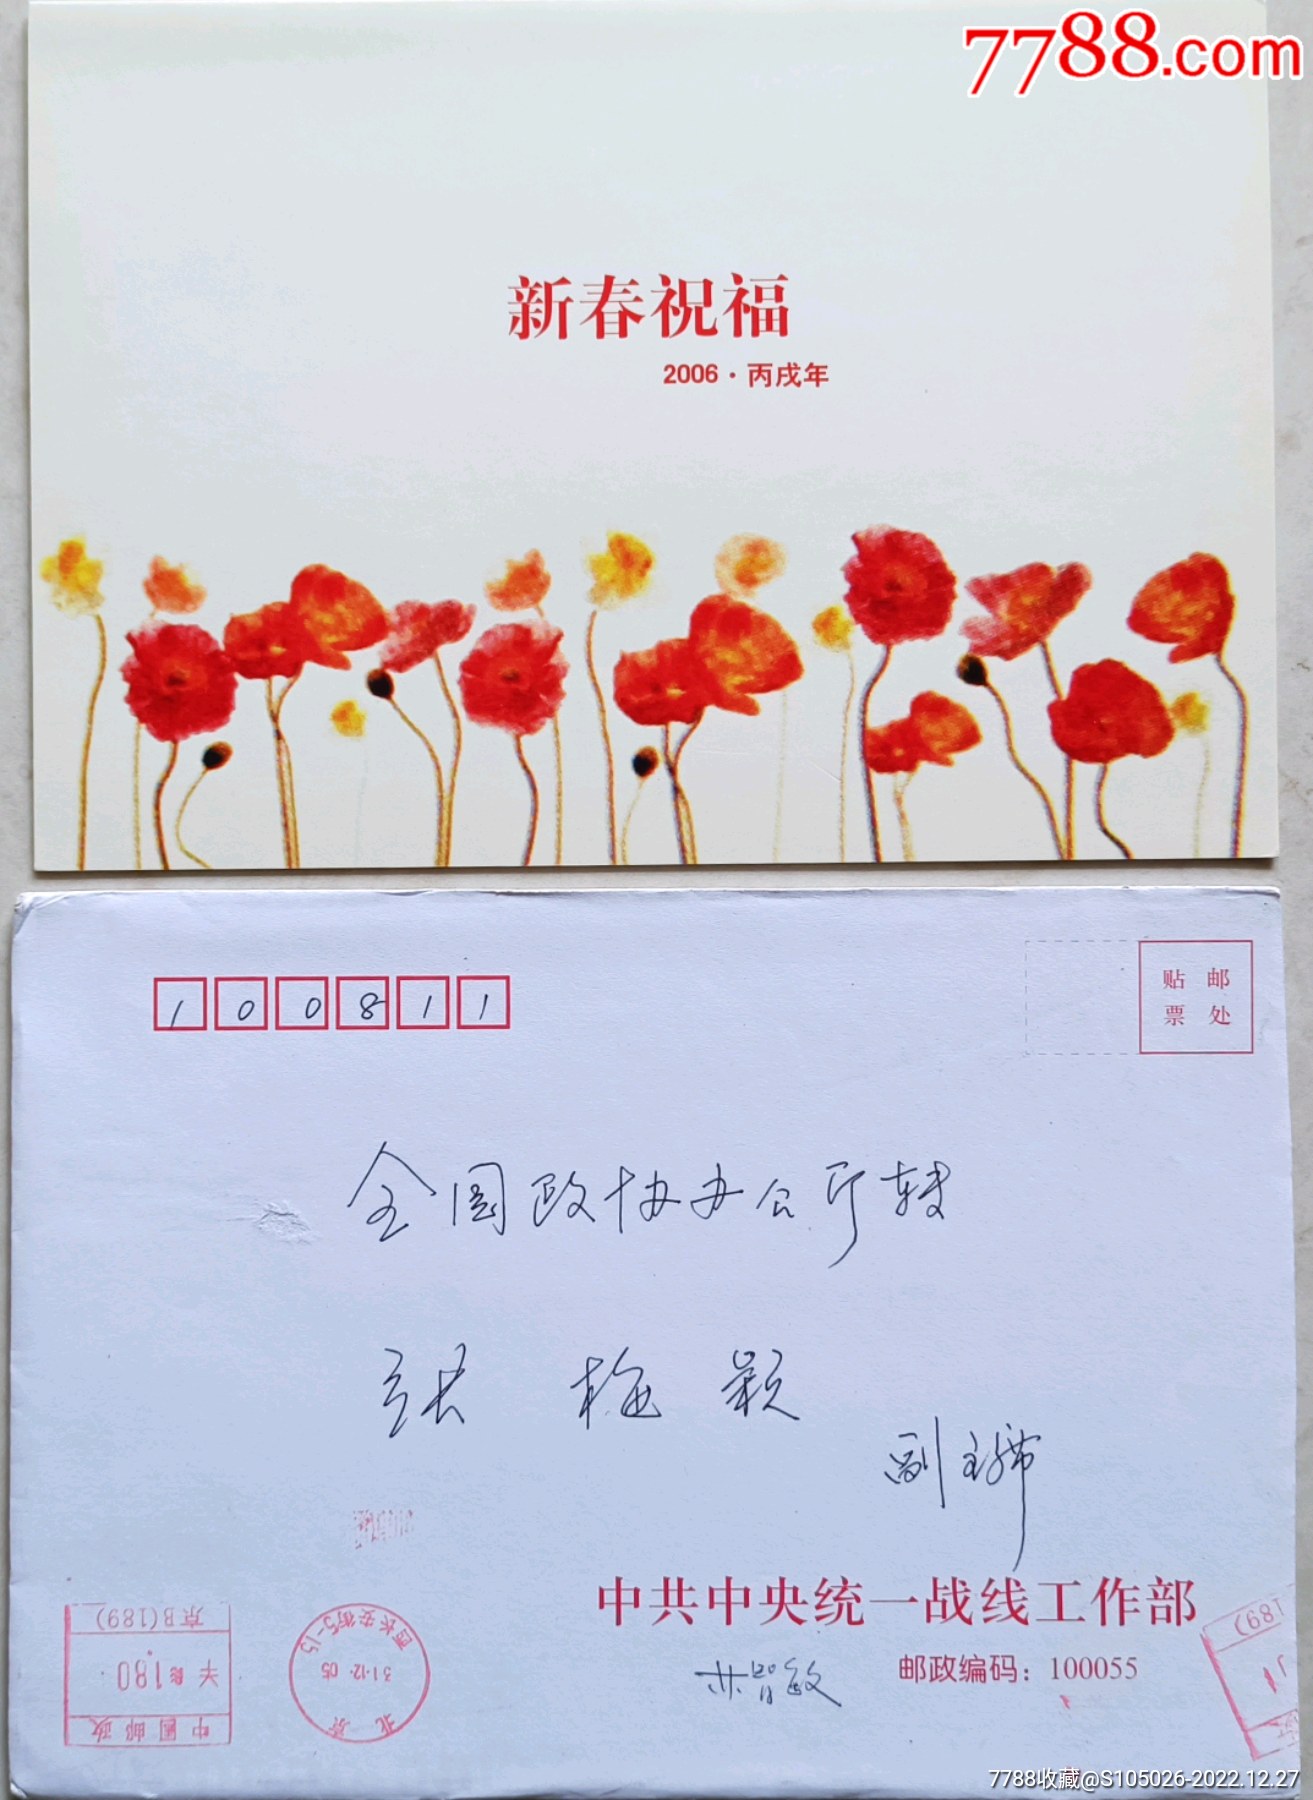 7788.com
新春祝福
2006·丙戌年
100811
贴邮
票处
全国政协办公厅转
张梅颖
副主席
中共中央统一战线工作部
邮政编码：100055
林智敏
京B(189)
180
中国邮政
西长安街5-15
31.12.05
北京
189)
7788收藏@S105026-2022.12.27